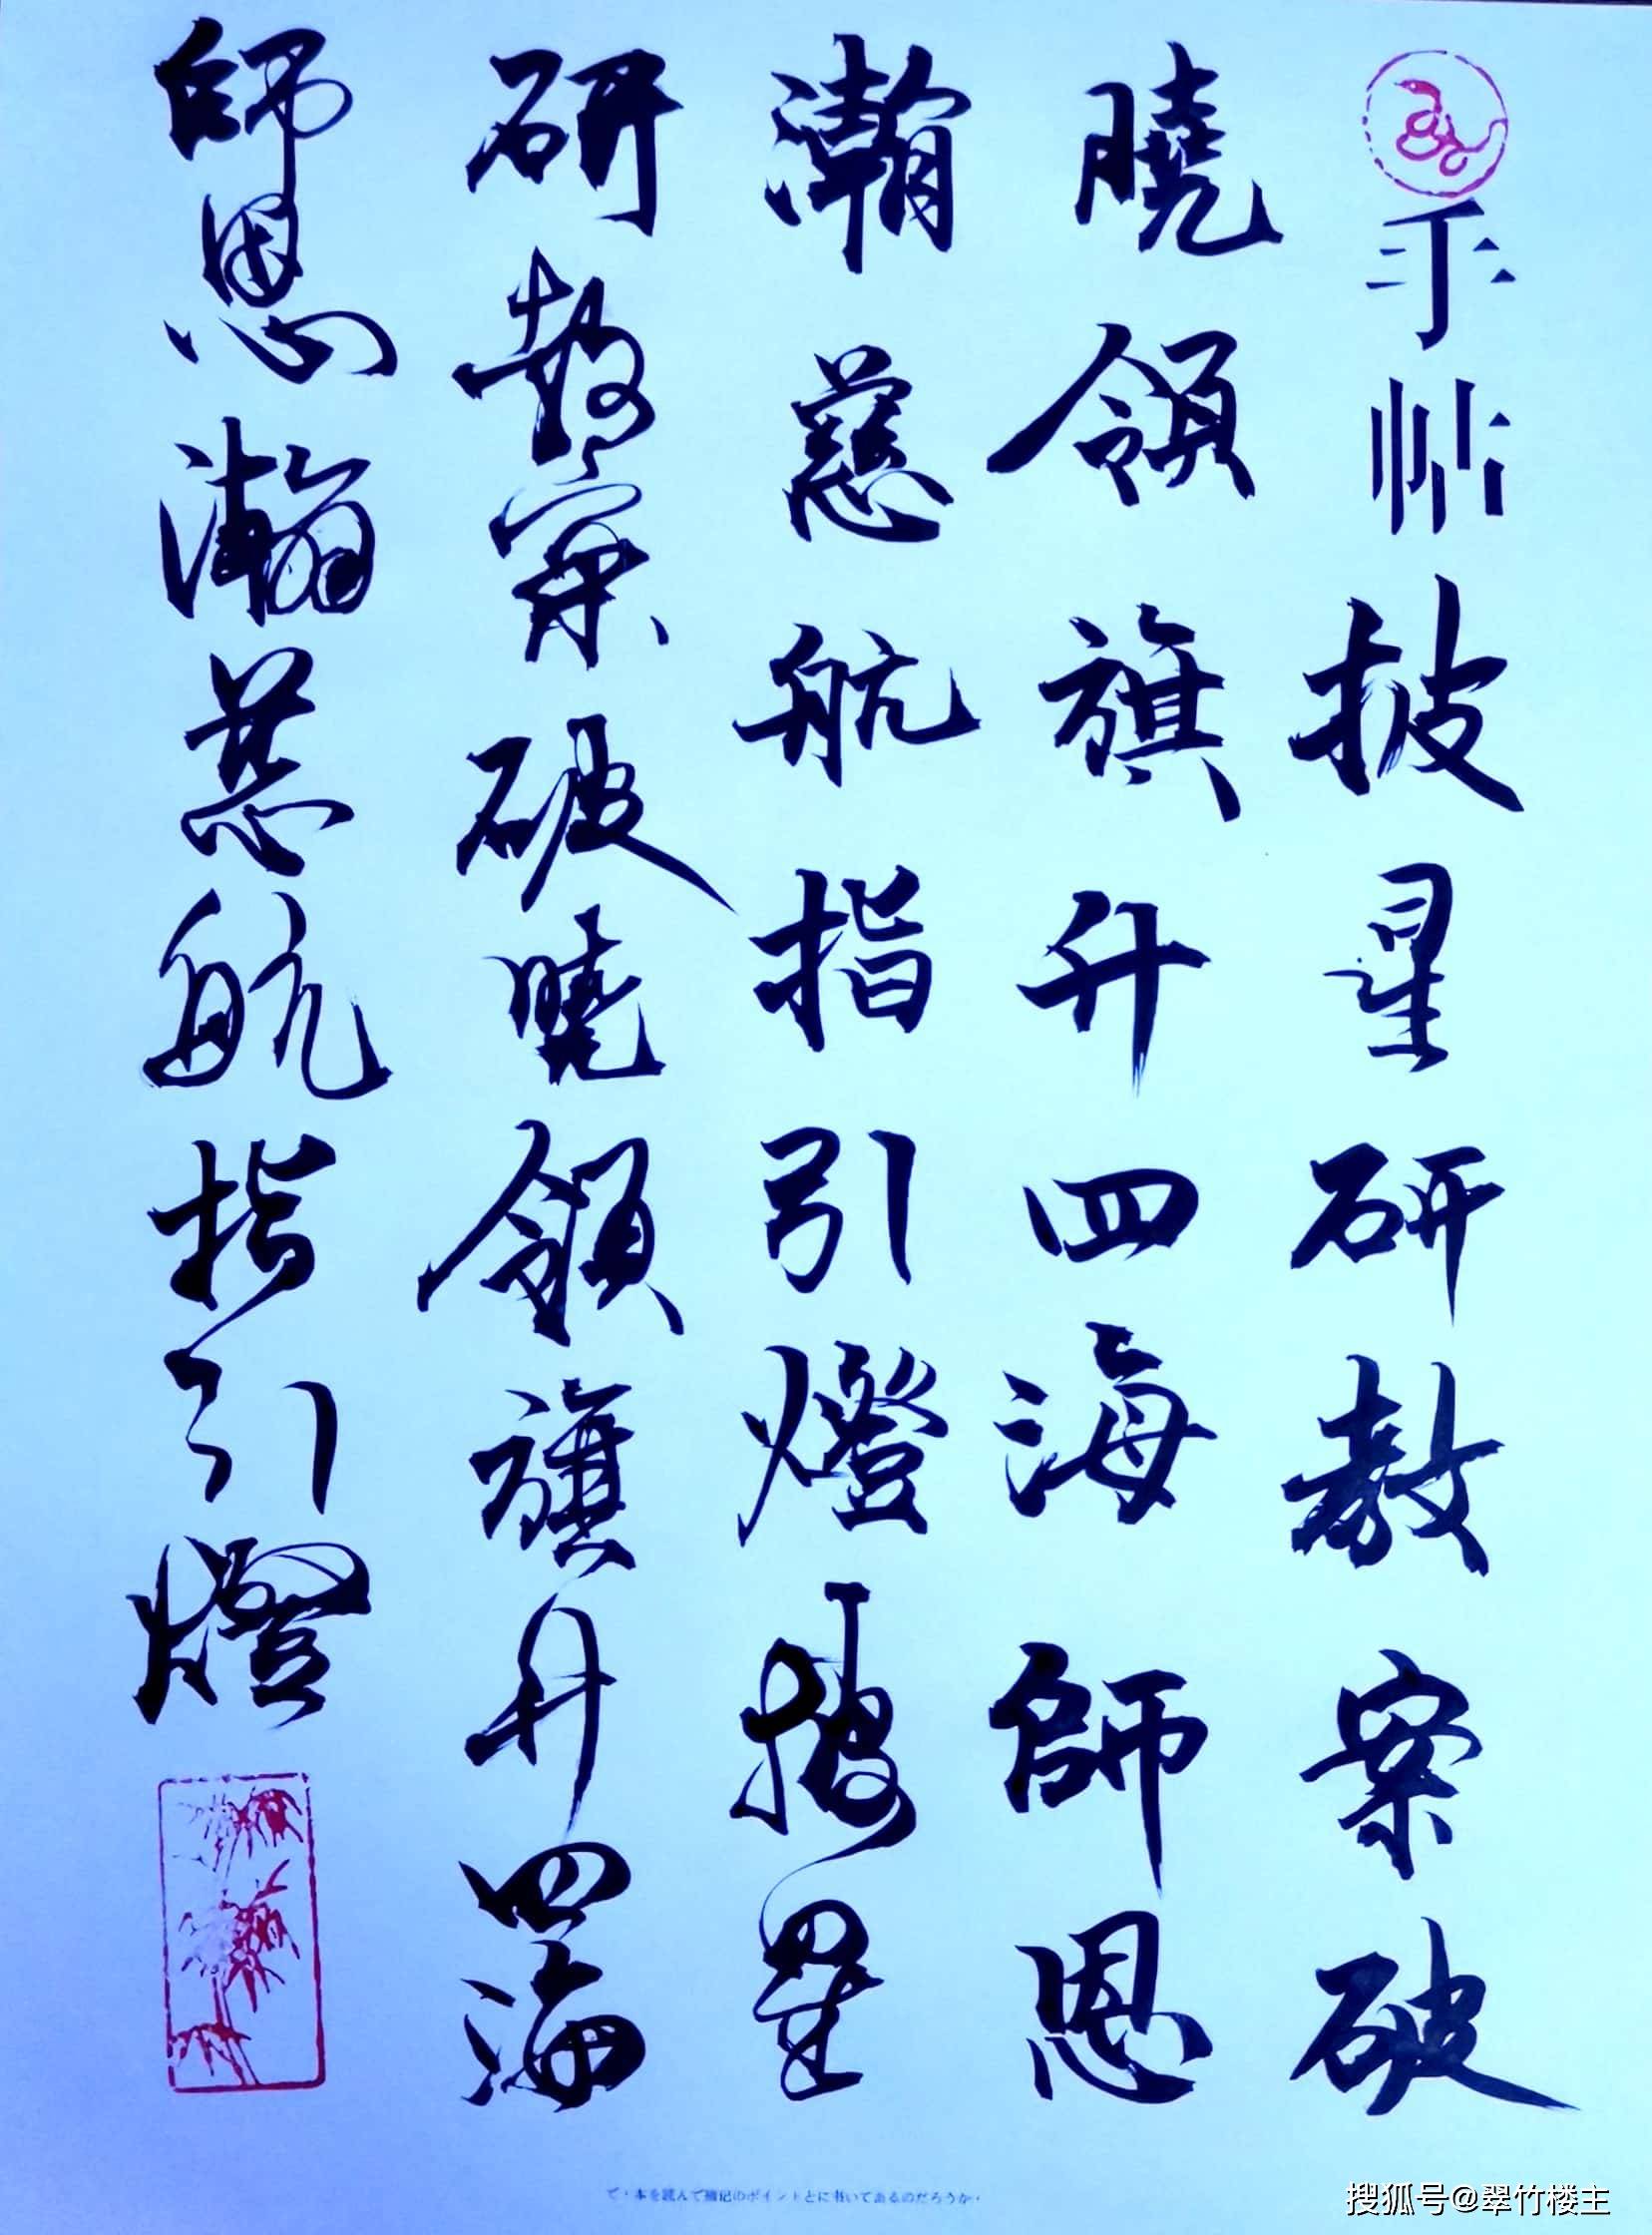 手帖披星研教案破
曉領旗升四海師恩
瀚慈航指引燈披星
研教案破曉領旗升四海
師恩瀚慈航指引燈
搜狐号@翠竹楼主